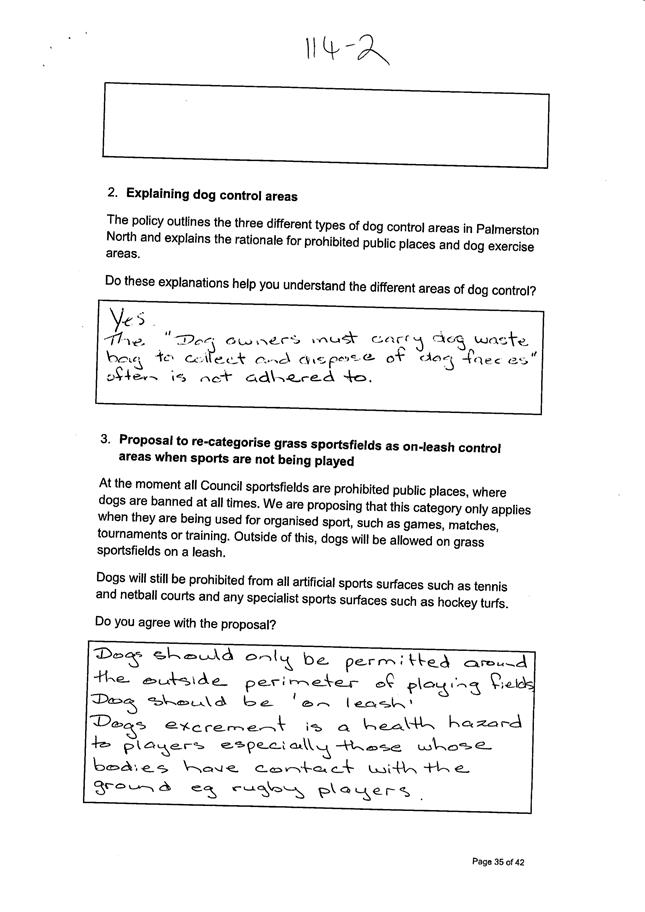 114-2
2. Explaining dog control areas
The policy outlines the three different types of dog control areas in Palmerston
North and explains the rationale for prohibited public places and dog exercise
areas.
Do these explanations help you understand the different areas of dog control?
Yes.
The "Dog owners must carry dog waste
bag to collect and dispose of dog faeces"
often is not adhered to.
3. Proposal to re-categorise grass sportsfields as on-leash control
areas when sports are not being played
At the moment all Council sportsfields are prohibited public places, where
dogs are banned at all times. We are proposing that this category only applies
when they are being used for organised sport, such as games, matches,
tournaments or training. Outside of this, dogs will be allowed on grass
sportsfields on a leash.
Dogs will still be prohibited from all artificial sports surfaces such as tennis
and netball courts and any specialist sports surfaces such as hockey turfs.
Do you agree with the proposal?
Dogs should only be permitted around
the outside perimeter of playing fields
Dog should be 'on leash'
Dogs excrement is a health hazard
to players especially those whose
bodies have contact with the
ground eg rugby players.
Page 35 of 42